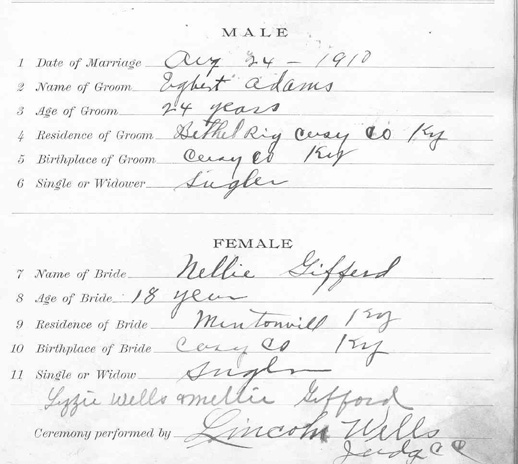 MALE
1 Date of Marriage Aug 24 - 1910
2 Name of Groom Egbert Adams
3 Age of Groom 24 years
4 Residence of Groom Bethel Rig Casy Co Ky
5 Birthplace of Groom Casy Co Ky
6 Single or Widower Singler
FEMALE
7 Name of Bride Nellie Gifferd
8 Age of Bride 18 year
9 Residence of Bride Mintonvill Ky
10 Birthplace of Bride Casy Co Ky
11 Single or Widow Singler
Lyzzie Wells & Mellie Gifford
Ceremony performed by Lincoln Wells
Judg